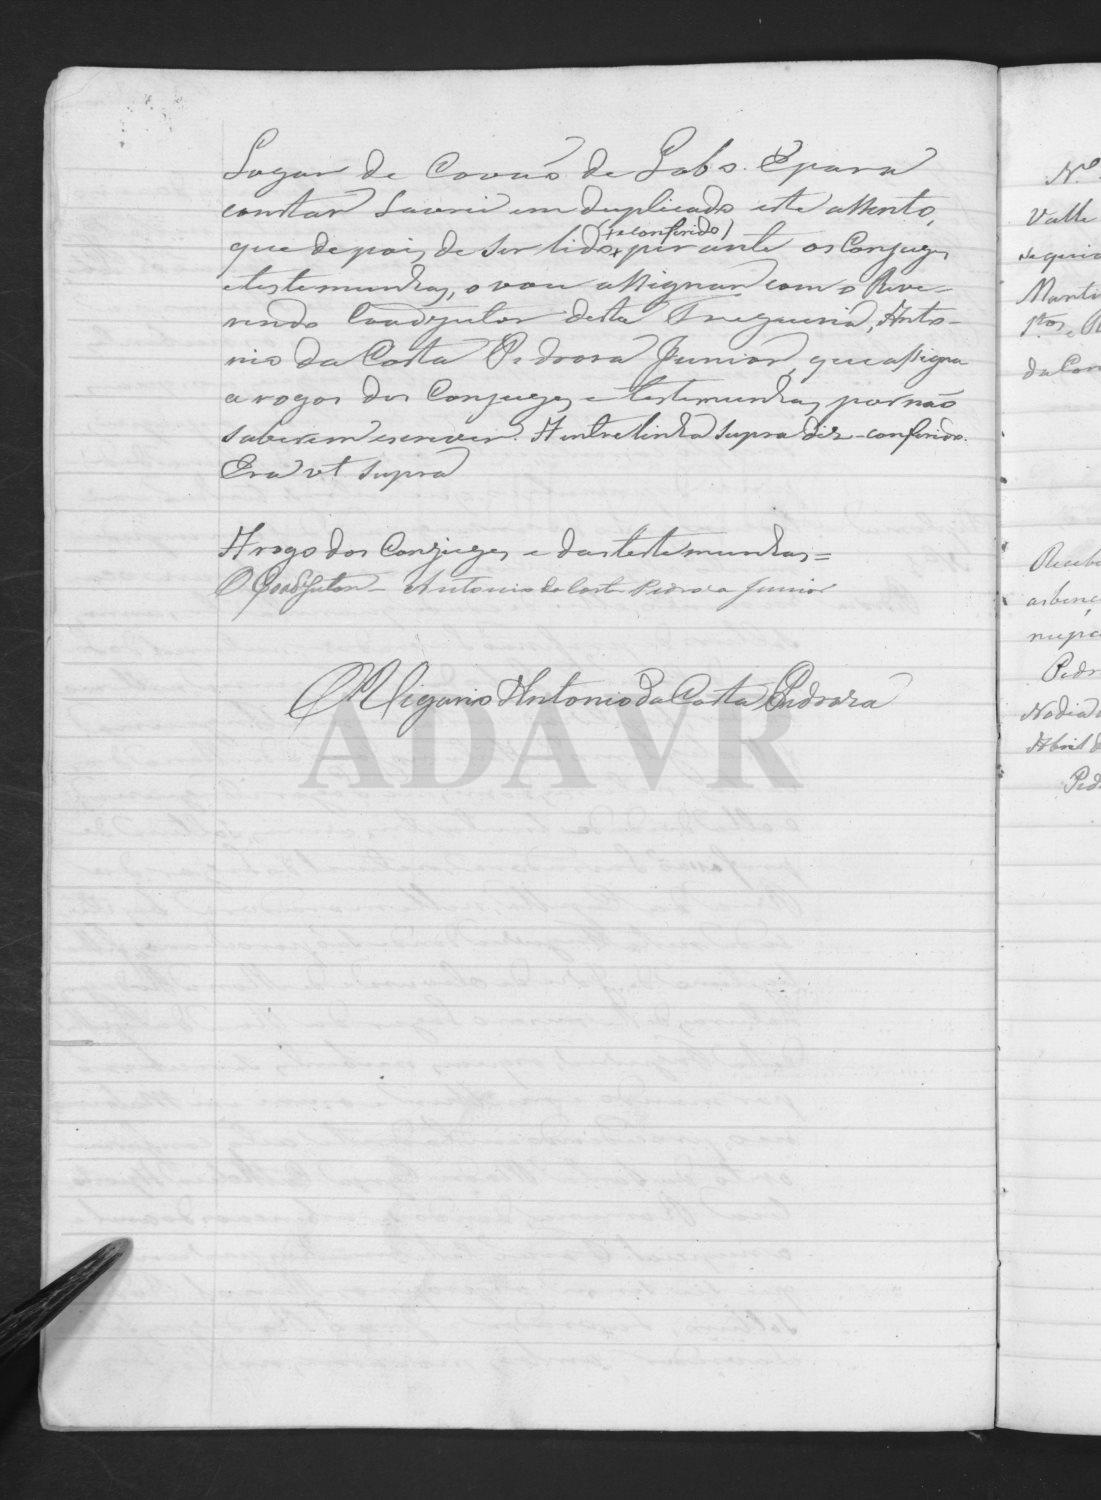 Logar de Covas de Lobo. E para
constar lavrei em duplicado este assento,
(+e conferido)
que depois de ser lido+ perante os Conjuges
e testemunhas, o vou assignar com o Reve-
rendo Coadjutor desta Freguezia, Anto-
nio da Costa Pedrosa Junior, que assigna
a rogo dos Conjuges e testemunhas por não
saberem escrever. A entrelinha supra diz - conferido.
Era ut supra
A rogo dos Conjuges e das testemunhas =
O Coadjutor - Antonio da Costa Pedrosa Junior
O Vigario Antonio da Costa Pedrosa
ADAVR
Nº
Valle
Marti
da Con
Receb
as benç
nupc
Pedr
No dia
Abril d
Ped